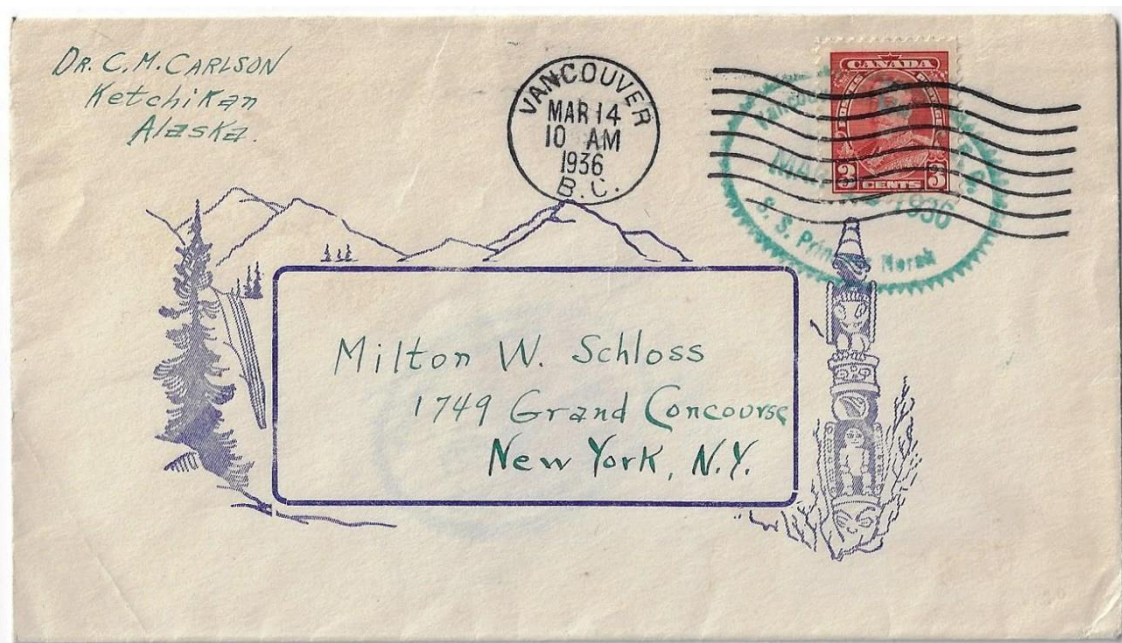 DR. C. M. CARLSON
Ketchikan
Alaska.
VANCOUVER
MAR 14
10 AM
1936
B.C.
CANADA
POSTES POSTAGE
3 CENTS 3
Vancouver
MAR 1936
S. S. Princess Norah
Milton W. Schloss
1749 Grand Concourse
New York, N.Y.